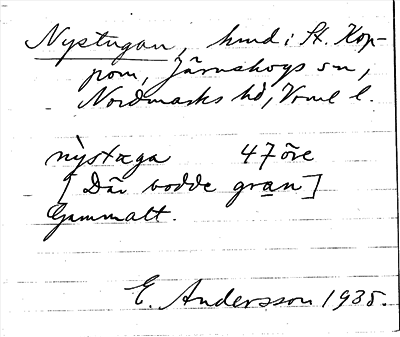 Nystugan, hmd i St. Kop-
pom, Järnskogs sn,
Nordmarks hd, Vrml l.
nỳstæga 47 öre
[Där bodde gran]
Gammalt.
E. Andersson 1935.